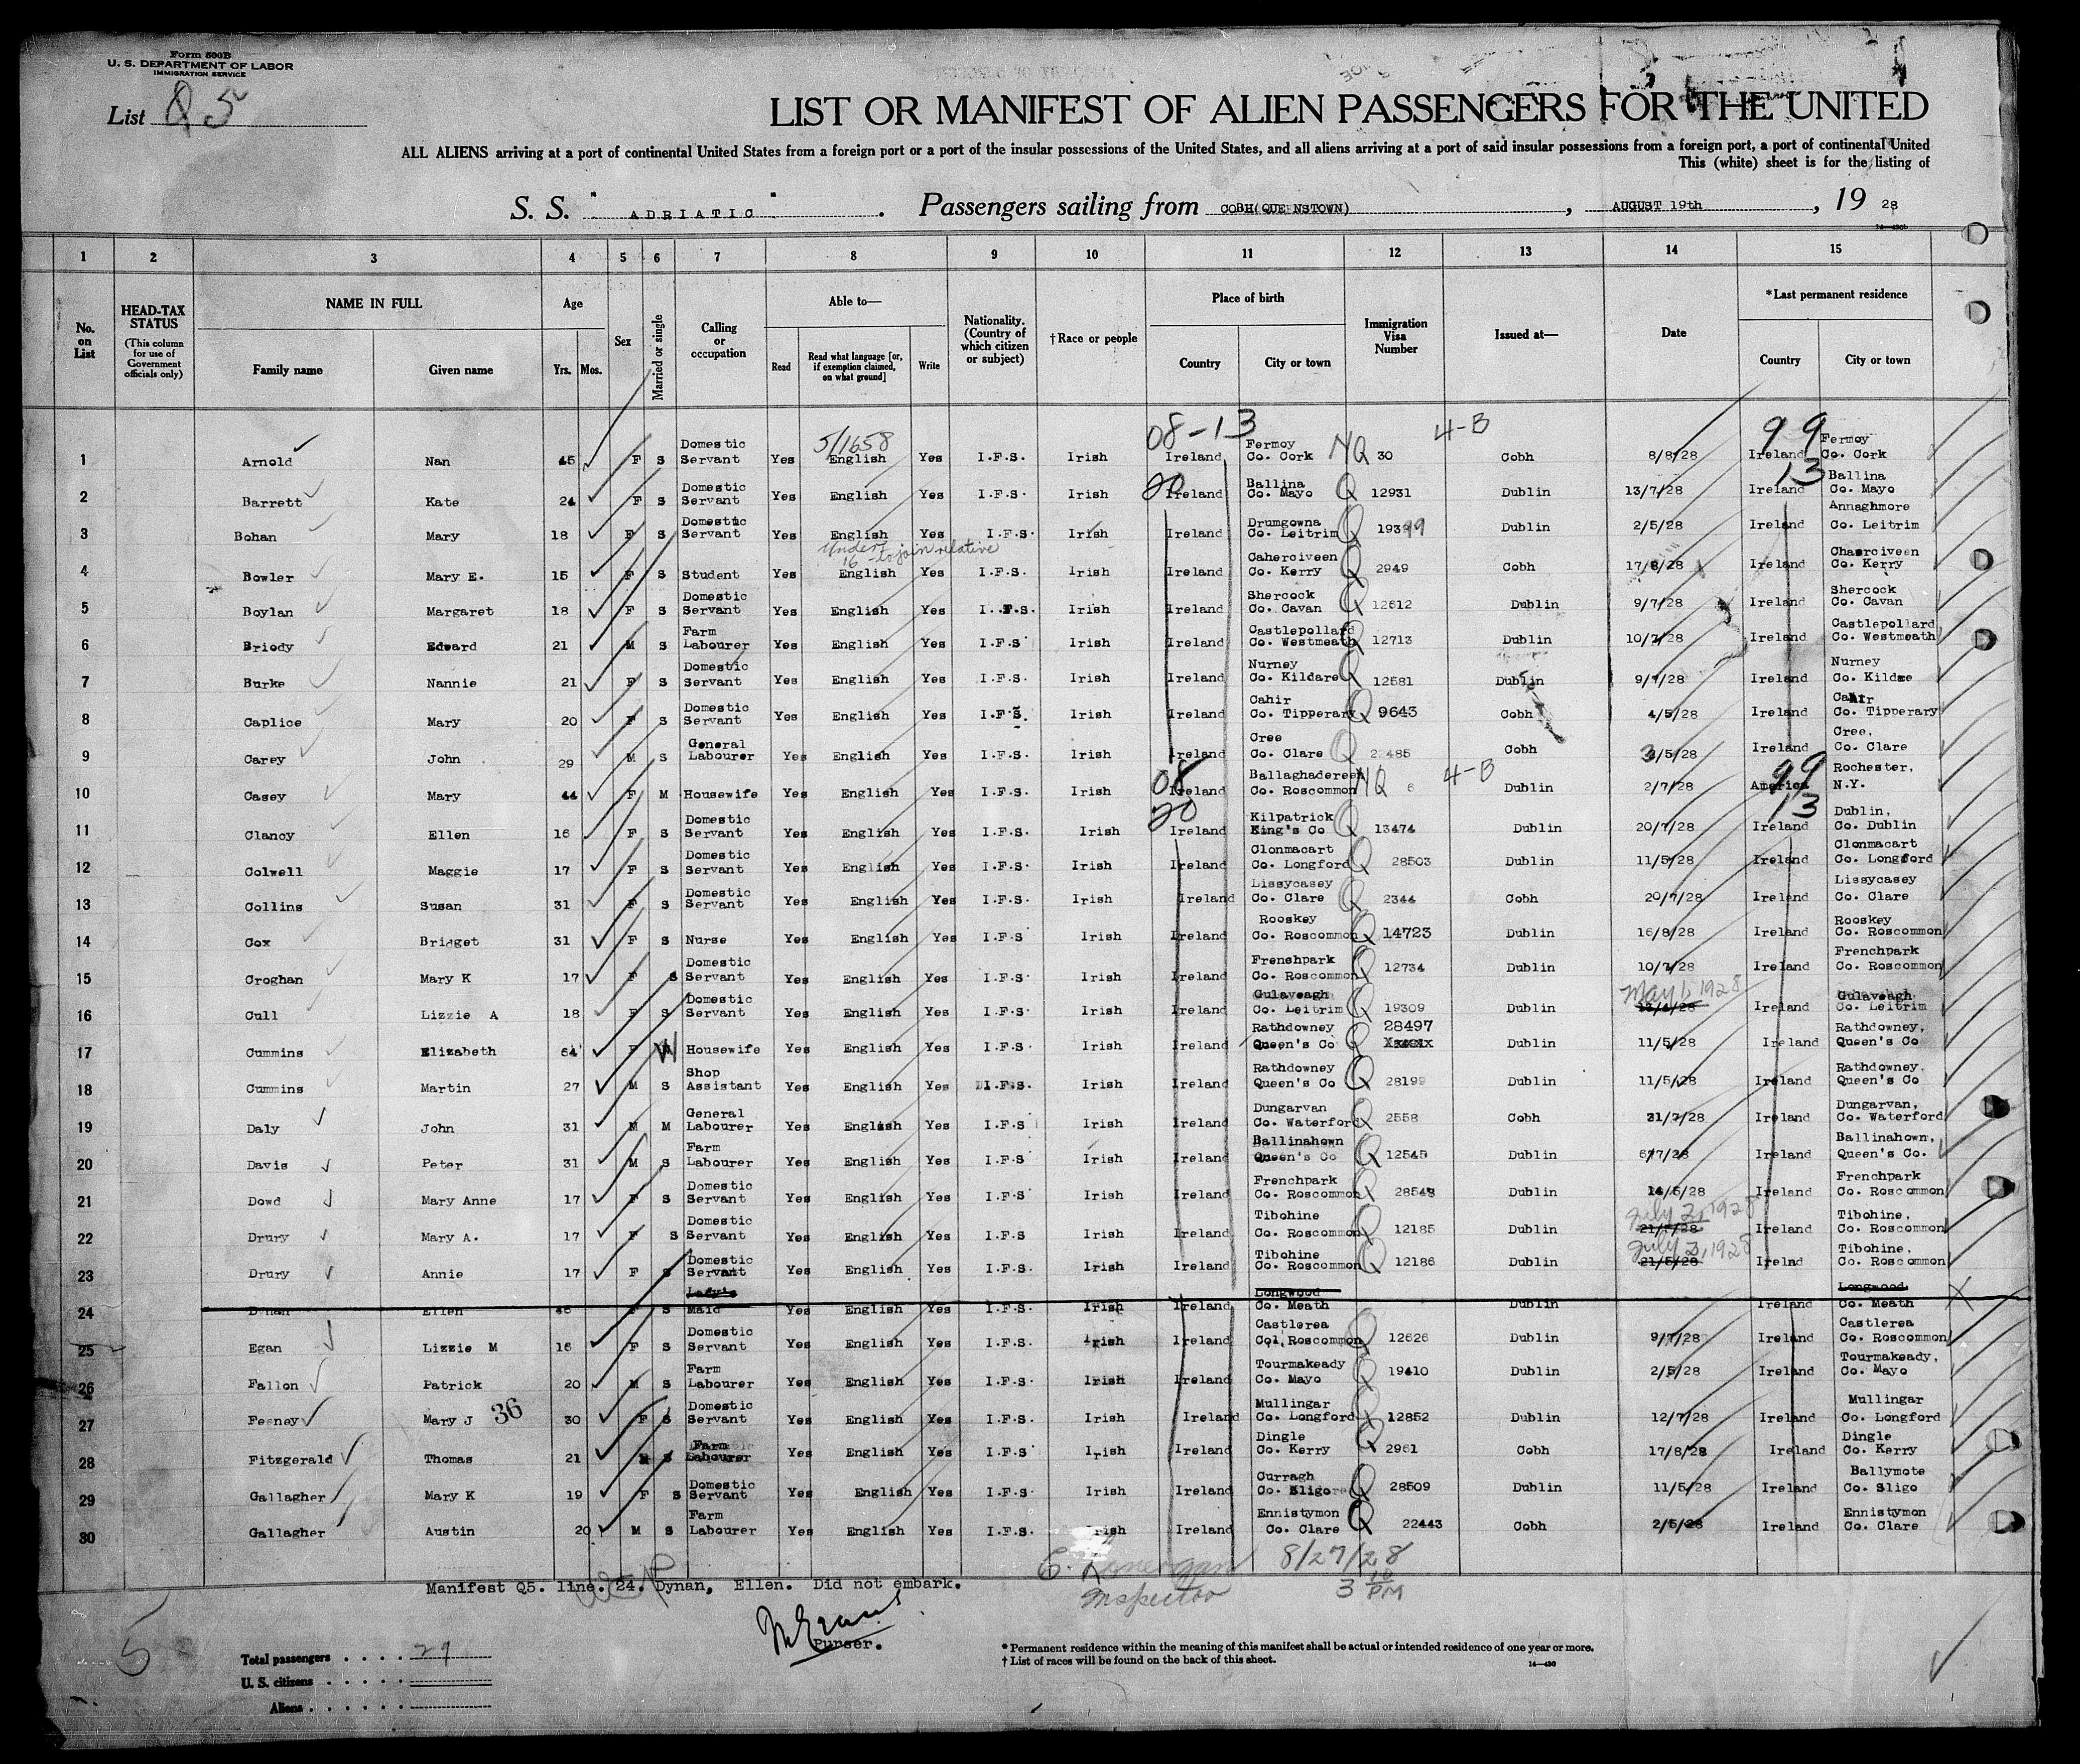 Form 500B
U. S. DEPARTMENT OF LABOR
IMMIGRATION SERVICE
List Q 5
LIST OR MANIFEST OF ALIEN PASSENGERS FOR THE UNITED
ALL ALIENS arriving at a port of continental United States from a foreign port or a port of the insular possessions of the United States, and all aliens arriving at a port of said insular possessions from a foreign port, a port of continental United
This (white) sheet is for the listing of
S. S. " ADRIATIC " . Passengers sailing from COBH(QUEENSTOWN) , AUGUST 19th , 19 28
14—430b
1 2 3 4 5 6 7 8 9 10 11 12 13 14 15
No. on List HEAD-TAX STATUS (This column for use of Government officials only) NAME IN FULL Family name Given name Age Yrs. Mos. Sex Married or single Calling or occupation Able to— Read Read what language [or, if exemption claimed, on what ground] Write Nationality. (Country of which citizen or subject) †Race or people Place of birth Country City or town Immigration Visa Number Issued at— Date *Last permanent residence Country City or town
5/1658 08-13 4-B 99
1 Arnold Nan 45 F S Domestic Servant Yes English Yes I.F.S. Irish Ireland Fermoy Co. Cork NQ 30 Cobh 8/8/28 Ireland Fermoy Co. Cork
20 13
2 Barrett Kate 24 F S Domestic Servant Yes English Yes I.F.S. Irish Ireland Ballina Co. Mayo Q 12931 Dublin 13/7/28 Ireland Ballina Co. Mayo
3 Bohan Mary 18 F S Domestic Servant Yes English Yes I.F.S. Irish Ireland Drumgowna Co. Leitrim Q 19399 Dublin 2/5/28 Ireland Annaghmore Co. Leitrim
Under 16 - to join relative
4 Bowler Mary E. 15 F S Student Yes English Yes I.F.S. Irish Ireland Caherciveen Co. Kerry Q 2949 Cobh 17/8/28 Ireland Chaerciveen Co. Kerry
5 Boylan Margaret 18 F S Domestic Servant Yes English Yes I..F.S. Irish Ireland Shercock Co. Cavan Q 12612 Dublin 9/7/28 Ireland Shercock Co. Cavan
6 Briody Edward 21 M S Farm Labourer Yes English Yes I.F.S Irish Ireland Castlepollard Co. Westmeath Q 12713 Dublin 10/7/28 Ireland Castlepollard Co. Westmeath
7 Burke Nannie 21 F S Domestic Servant Yes English Yes I.F.S. Irish Ireland Nurney Co. Kildare Q 12581 Dublin 9/7/28 Ireland Nurney Co. Kildare
8 Caplice Mary 20 F S Domestic Servant Yes English Yes I.F.S. Irish Ireland Cahir Co. Tipperary Q 9643 Cobh 4/5/28 Ireland Cahir Co. Tipperary
9 Carey John 29 M S General Labourer Yes English Yes I.F.S. Irish Ireland Cree Co. Clare Q 22485 Cobh 3/5/28 Ireland Cree, Co. Clare
08 4-B 99
10 Casey Mary 44 F M Housewife Yes English Yes I.F.S. Irish Ireland Ballaghadereen Co. Roscommon NQ 6 Dublin 2/7/28 America Rochester, N.Y.
20 13
11 Clancy Ellen 16 F S Domestic Servant Yes English Yes I.F.S. Irish Ireland Kilpatrick King's Co Q 13474 Dublin 20/7/28 Ireland Dublin, Co. Dublin
12 Colwell Maggie 17 F S Domestic Servant Yes English Yes I.F.S. Irish Ireland Clonmacart Co. Longford Q 28503 Dublin 11/5/28 Ireland Clonmacart Co. Longford
13 Collins Susan 31 F S Domestic Servant Yes English Yes I.F.S. Irish Ireland Lissycasey Co. Clare Q 2344 Cobh 20/7/28 Ireland Lissycasey Co. Clare
14 Cox Bridget 31 F S Nurse Yes English Yes I.F.S Irish Ireland Rooskey Co. Roscommon Q 14723 Dublin 16/8/28 Ireland Rooskey Co. Roscommon
15 Croghan Mary K 17 F S Domestic Servant Yes English Yes I.F.S Irish Ireland Frenshpark Co. Roscommon Q 12734 Dublin 10/7/28 Ireland Frenchpark Co. Roscommon
May 1, 1928
16 Cull Lizzie A 18 F S Domestic Servant Yes English Yes I.F.S. Irish Ireland Gulaveagh Co. Leitrim Q 19309 Dublin Ireland Gulaveagh Co. Leitrim
17 Cummins Elizabeth 64 F W Housewife Yes English Yes I.F.S Irish Ireland Rathdowney Queen's Co Q 28497 Dublin 11/5/28 Ireland Rathdowney, Queen's Co
18 Cummins Martin 27 M S Shop Assistant Yes English Yes I.F.S. Irish Ireland Rathdowney Queen's Co Q 28199 Dublin 11/5/28 Ireland Rathdowney. Queen's Co
19 Daly John 31 M M General Labourer Yes English Yes I.F.S Irish Ireland Dungarvan Co. Waterford Q 2558 Cobh 31/7/28 Ireland Dungarvan, Co. Waterford
20 Davis Peter 31 M S Farm Labourer Yes English Yes I.F.S Irish Ireland Ballinahown Queen's Co Q 12545 Dublin 6/7/28 Ireland Ballinahown, Queen's Co.
21 Dowd Mary Anne 17 F S Domestic Servant Yes English Yes I.F.S Irish Ireland Frenchpark Co. Roscommon Q 28548 Dublin 14/5/28 Ireland Frenchpark Co. Roscommon
July 2, 1928
22 Drury Mary A. 17 F S Domestic Servant Yes English Yes I.F.S Irish Ireland Tibohine Co. Roscommon Q 12185 Dublin 21/5/28 Ireland Tibohine, Co. Roscommon
July 2, 1928
23 Drury Annie 17 F S Domestic Servant Yes English Yes I.F.S. Irish Ireland Tibohine Co. Roscommon Q 12186 Dublin 21/5/28 Irelnd Tibohine, Co. Roscommon
24 Dynan Ellen 46 F S Lady's Maid Yes English Yes I.F.S. Irish Ireland Longwood Co. Meath Dublin Ireland Longwood Co. Meath X
25 Egan Lizzie M 16 F S Domestic Servant Yes English Yes I.F.S. Irish Ireland Castlerea Co. Roscommon Q 12626 Dublin 9/7/28 Ireland Castlerea Co. Roscommon
26 Fallon Patrick 20 M S Farm Labourer Yes English Yes I.F.S. Irish Ireland Tourmakeady Co. Mayo Q 19410 Dublin 2/5/28 Ireland Tourmakeady, Co. Mayo
27 Feeney Mary J 36 30 F S Domestic Servant Yes English Yes I.F.S. Irish Ireland Mullingar Co. Longford Q 12852 Dublin 12/7/28 Ireland Mullingar Co. Longford
28 Fitzgerald Thomas 21 M S Farm Labourer Yes English Yes I.F.S Irish Ireland Dingle Co. Kerry Q 2961 Cobh 17/8/28 Ireland Dingle Co. Kerry
29 Gallagher Mary K 19 F S Domestic Servant Yes English Yes I.F.S Irish Ireland Curragh Co. Sligo Q 28509 Dublin 11/5/28 Ireland Ballymote Co. Sligo
30 Gallagher Austin 20 M S Farm Labourer Yes English Yes I.F.S. Irish Ireland Ennistymon Co. Clare Q 22443 Cobh 2/5/28 Ireland Ennistymon Co. Clare
Manifest Q5. line. 24. Dynan, Ellen. Did not embark.
Inspector
8/27/28
3 10 PM
5
Purser.
Total passengers . . . . 29
U. S. citizens . . . . .
Aliens . . . . . .
* Permanent residence within the meaning of this manifest shall be actual or intended residence of one year or more.
† List of races will be found on the back of this sheet.
14—430